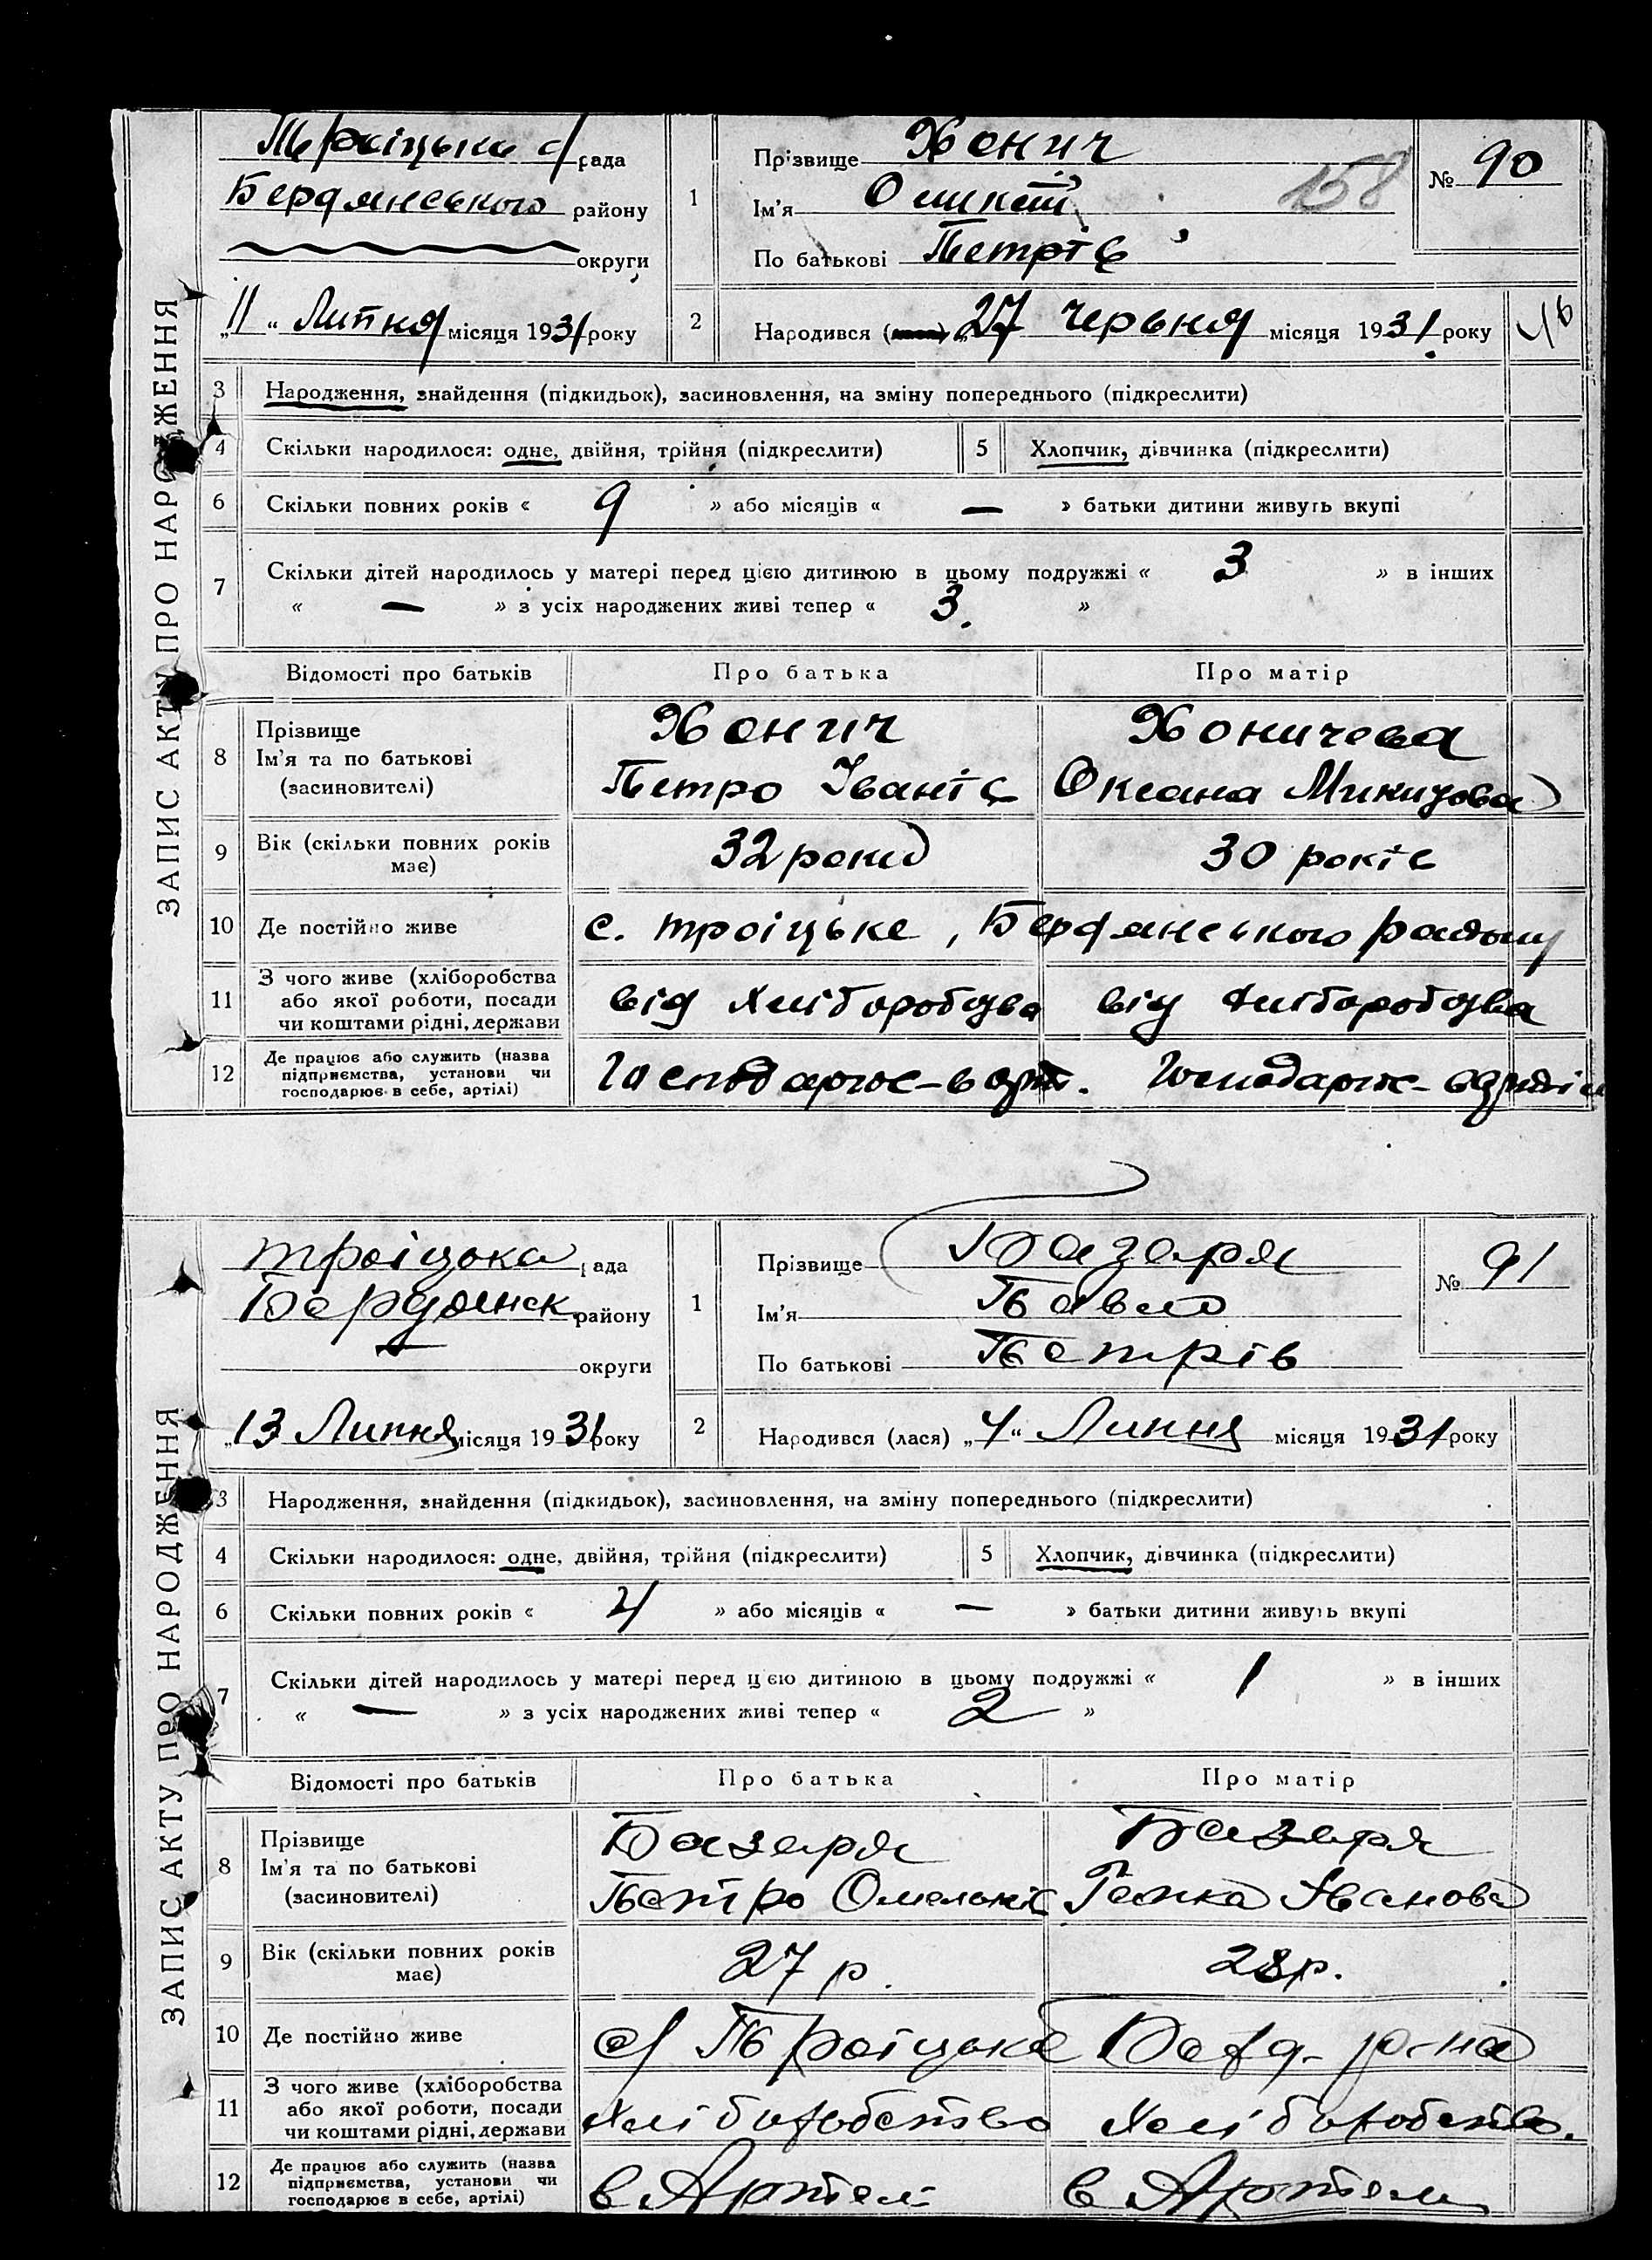 ЗАПИС АКТУ ПРО НАРОДЖЕННЯ
рада
Бердянського району
округи
„11“ Липня місяця 1931 року
1
Прізвище Хонич
Ім'я
По батькові Петрів
158
№ 90
2
Народився „27 Червня місяця 1931 року
3 Народження, знайдення (підкидьок), засиновлення, на зміну попереднього (підкреслити)
4 Скільки народилося: одне, двійня, трійня (підкреслити) 5 Хлопчик, дівчинка (підкреслити)
6 Скільки повних років « 9 » або місяців « — » батьки дитини живуть вкупі
7 Скільки дітей народилось у матері перед цією дитиною в цьому подружжі « 3 » в інших
« — » з усіх народжених живі тепер « 3. »
Відомості про батьків Про батька Про матір
8 Прізвище Хонич Хоничева
Ім'я та по батькові Петро Іванів Оксана
(засиновителі)
9 Вік (скільки повних років має) 32 роки 30 років
10 Де постійно живе с. Троїцьке, Бердянського району
11 З чого живе (хліборобства
або якої роботи, посади
чи коштами рідні, держави
від хліборобцва від хліборобцва
12 Де працює або служить (назва
підприємства, установи чи
господарює в себе, артілі)
Господарює-в арт. Господарює-в артілі
ЗАПИС АКТУ ПРО НАРОДЖЕННЯ
Троіцька рада
Бердянск району
— округи
„13 Липня місяця 1931 року
1
Прізвище Базаря
Ім'я Павло
По батькові Петрів
№ 91
2
Народився (лася) „4“ Липня місяця 1931 року
3 Народження, знайдення (підкидьок), засиновлення, на зміну попереднього (підкреслити)
4 Скільки народилося: одне, двійня, трійня (підкреслити) 5 Хлопчик, дівчинка (підкреслити)
6 Скільки повних років « 4 » або місяців « — » батьки дитини живуть вкупі
7 Скільки дітей народилось у матері перед цією дитиною в цьому подружжі « 1 » в інших
« — » з усіх народжених живі тепер « 2 »
Відомості про батьків Про батька Про матір
8 Прізвище Базаря Базаря
Ім'я та по батькові Петро Омельків Ганка Іванова
(засиновителі)
9 Вік (скільки повних років має) 27 р. 28 р.
10 Де постійно живе с/ Троіцьке Берд. р-на
11 З чого живе (хліборобства
або якої роботи, посади
чи коштами рідні, держави
Хліборобство Хліборобство.
12 Де працює або служить (назва
підприємства, установи чи
господарює в себе, артілі)
в Артелі в Артелі